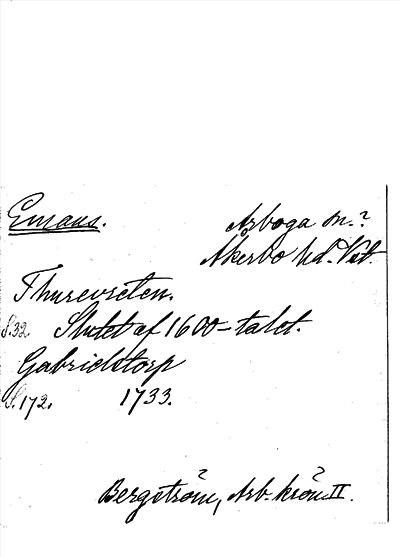 Emaus. Arboga sn.?
Åkerbo hd. Vstl.
Thurevreten.
S.32 Slutet af 1600-talet.
Gabrielstorp
S.172. 1733.
Bergström, Arb. krön. II.